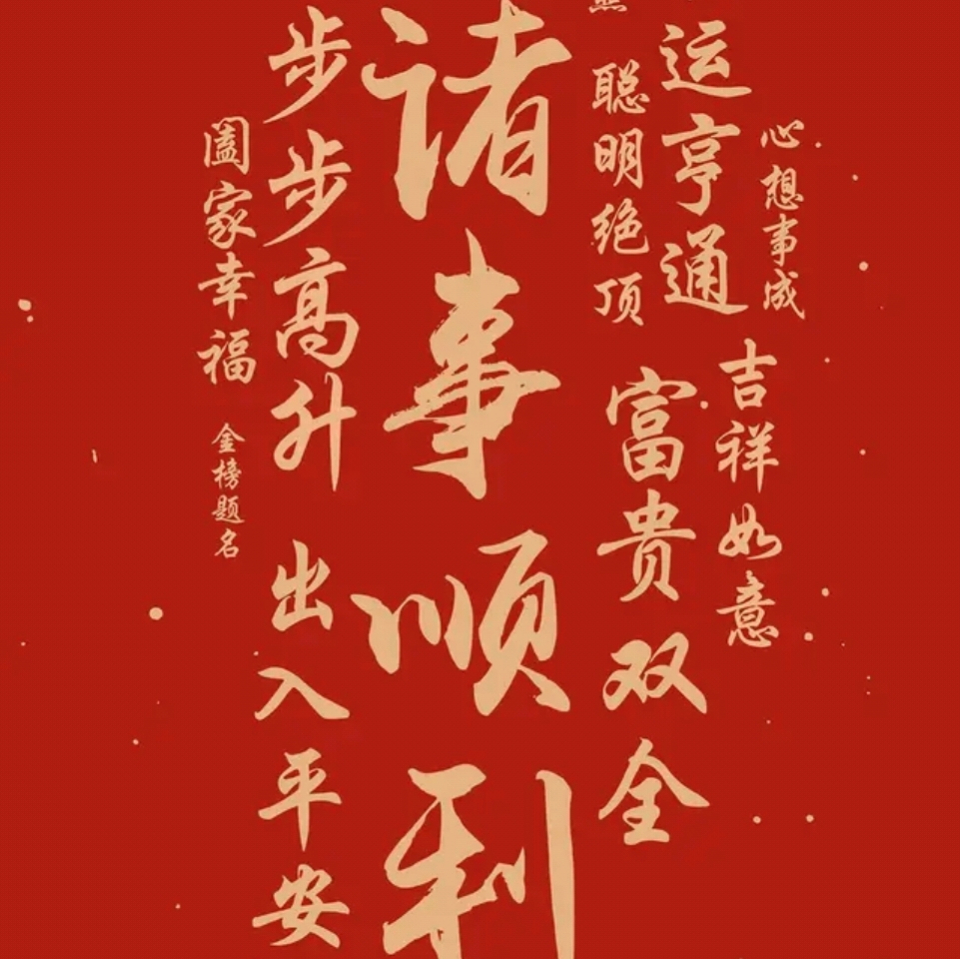 心想事成
吉祥如意
运亨通
富贵双全
聪明绝顶
诸事顺利
步步高升
出入平安
阖家幸福
金榜题名